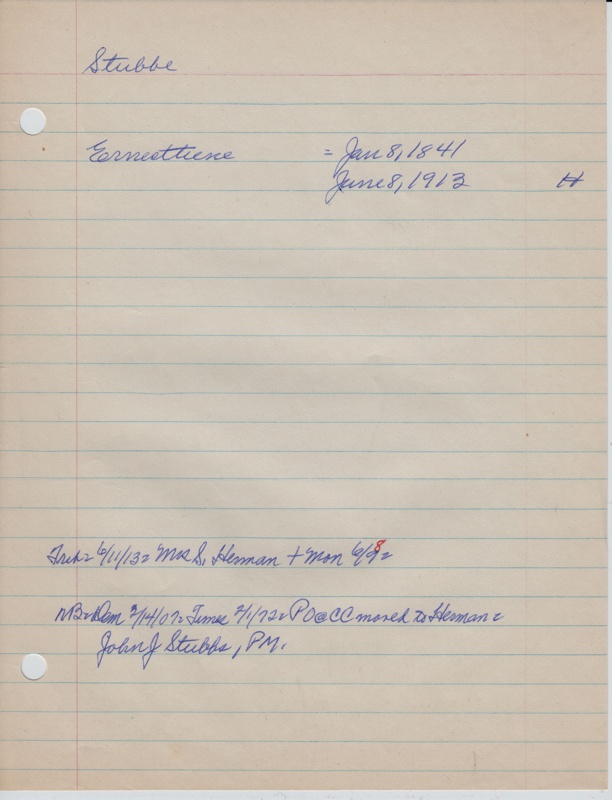 Stubbe
Ernesttiene = Jan 8, 1841
June 8, 1913 H
Trib = 6/11/13 = Mrs S, Herman + Mon 6/8 =
NB = Dem 2/14/07 = Times 2/1/72 = PO @ CC moved to Herman =
John J Stubbs, PM.